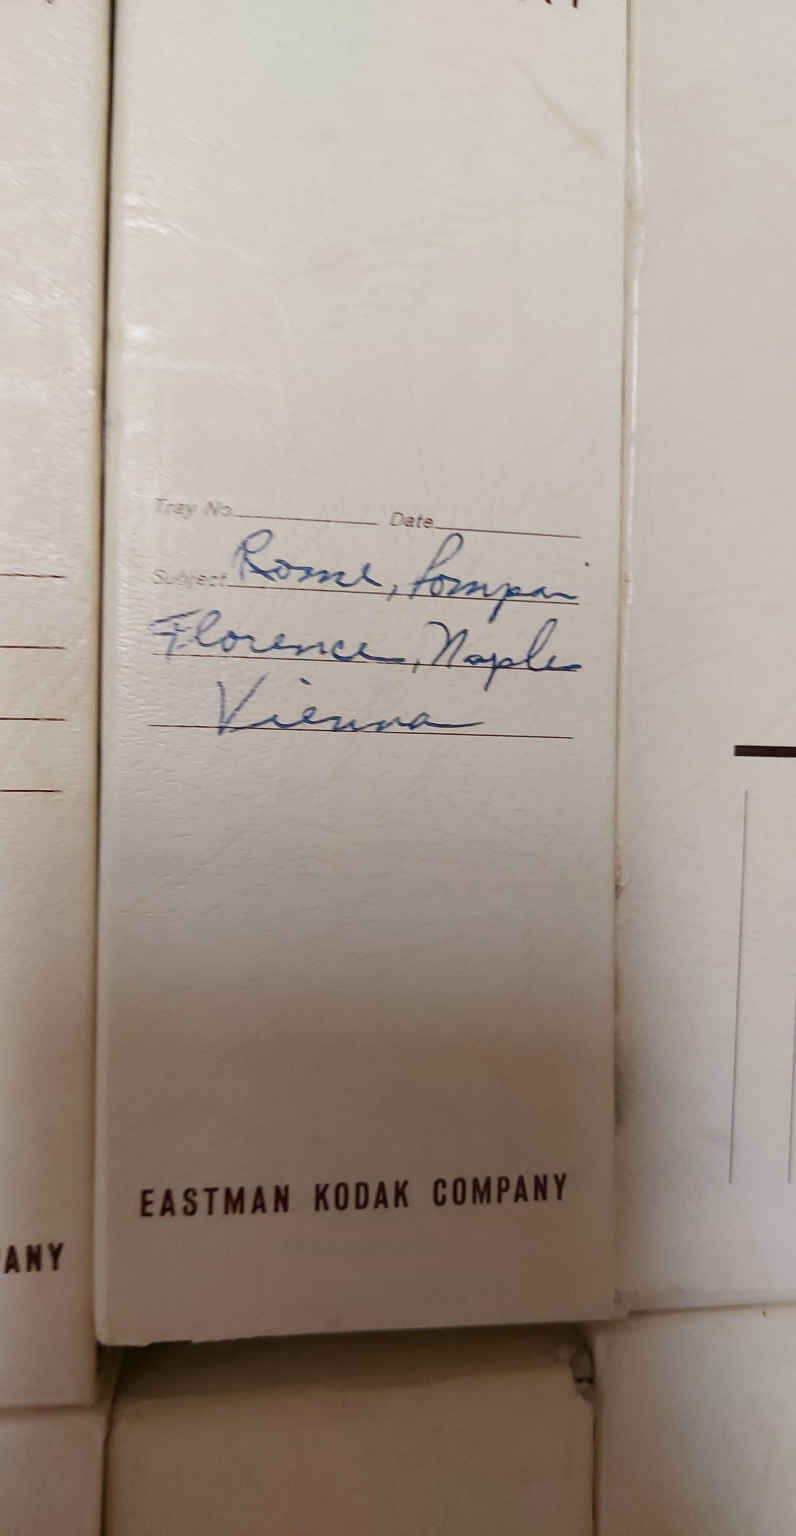 Tray No. Date
Subject Rome, Pompai
Florence, Naples
Vienna
EASTMAN KODAK COMPANY
PANY